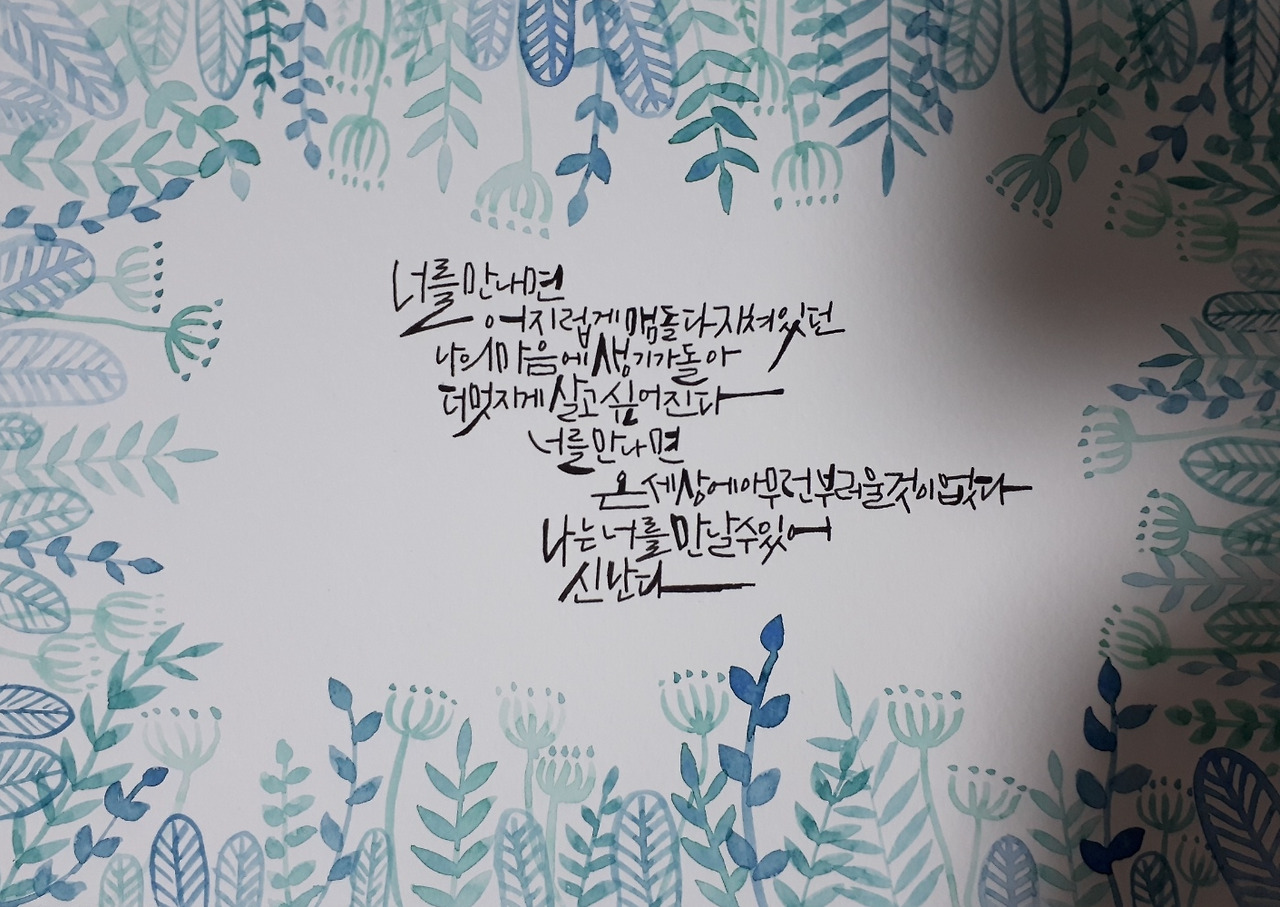 너를 만나면
어지럽게 맴돌다 지쳐있던
나의 마음에 생기가 돌아
더 멋지게 살고 싶어진다
너를 만나면
온 세상에 아무런 부러울 것이 없다
나는 너를 만날 수 있어
신난다